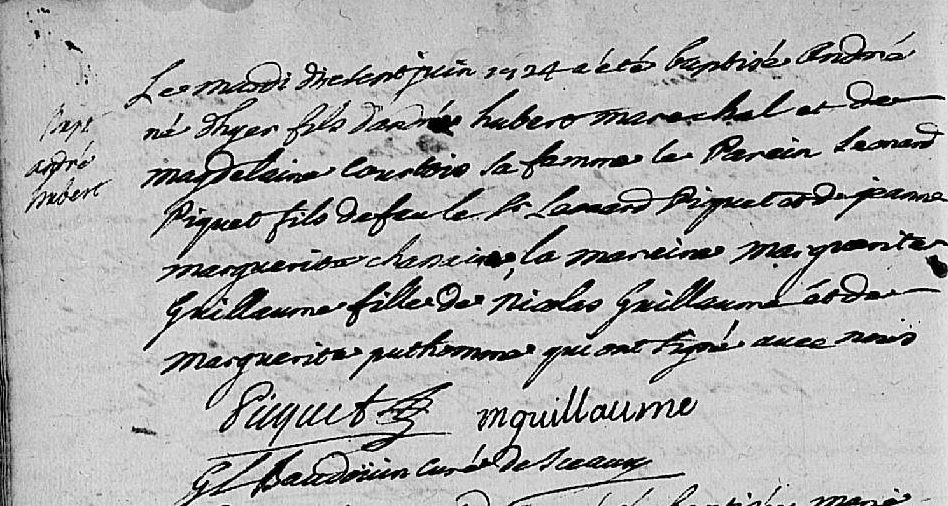 Bapt
andré
hubert
Le mardi dixsept juin 1724 a été baptisé André
né d'hyer fils d'andré hubert mareschal et de
magdelaine Courtois sa famme le Parein Leonard
Piquet fils de feu le Sr Leonard Piquet et de jeanne
marguerite la mareine marguerite
Guillaume fille de Nicolas Guillaume et de
marguerite puthomme qui ont signé avec nous
Piquet mguillaume
Baudouin curé de Sceaux
baptisée marie